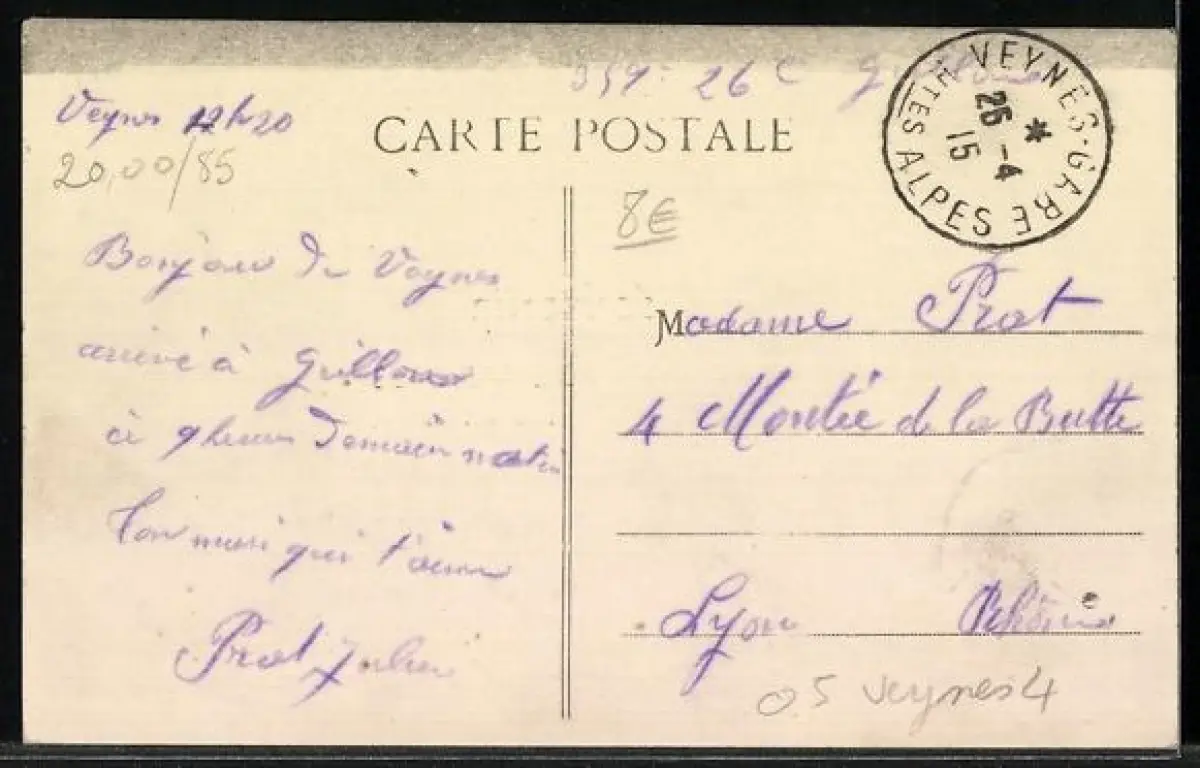 359e 26 C
Veynes 12h20
CARTE POSTALE
VEYNES-GARE
Htes ALPES
26-4
15
20,00/85
8€
Bonjour de Veynes
arrivé à Guillon
à 9 heures demain matin
Ton mari qui t'aime
Prat Julien
Madame Prat
4 Montée de la Butte
Lyon Rhône
05 veynes 4